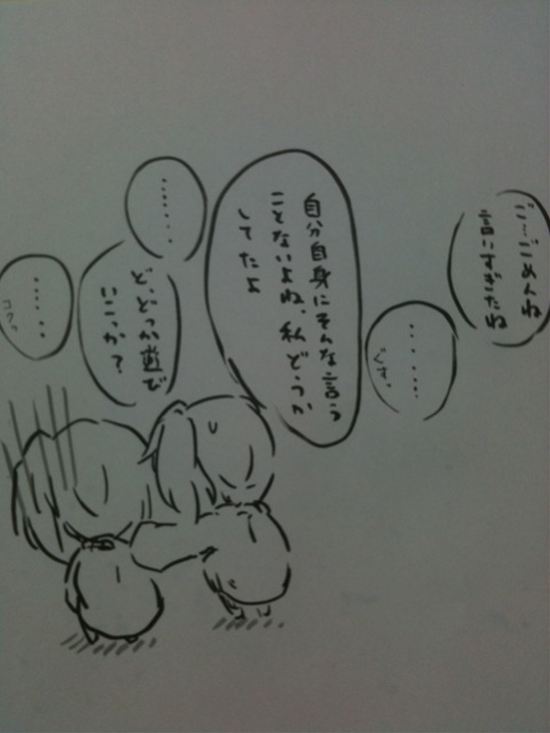 ご…ごめんね
言いすぎたね
‥‥‥
ぐす。
自分自身にそんな言う
ことないよね、私どうか
してたよ
‥‥‥‥
ど、どっか遊び
いこっか？
‥‥‥
コクッ